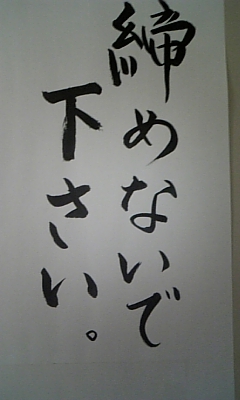 締めないで
下さい。